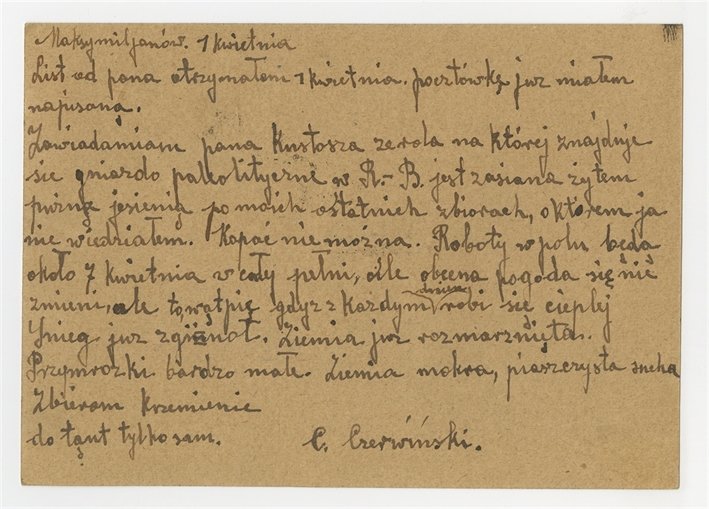 Maksymiljanów. 1 kwietnia
List od pana otrzymałem 1 kwietnia. pocztówkę juz miałem
napisaną.
Zawiadamiam pana Kustosza ze rola na której znajduje
sie gniazdo paleolityczne w R.-B. jest zasiana żytem
puzną jesienią po moich ostatnich zbiorach, oktorem ja
nie wiedziałem. Kopać nie można. Roboty w polu będa
około 7 kwietnia w cały pełni, oile obecna pogoda się nie
zmieni, ale towątpię gdyz z Kazdym dniem robi sie cieplej
Snieg juz zginoł. Ziemia juz rozmarznięta.
Przymrozki bardzo małe. Ziemia mokra, piaszczysta sucha
Zbieram krzemienie
do tąnt tylko sam. C. Czerwiński.